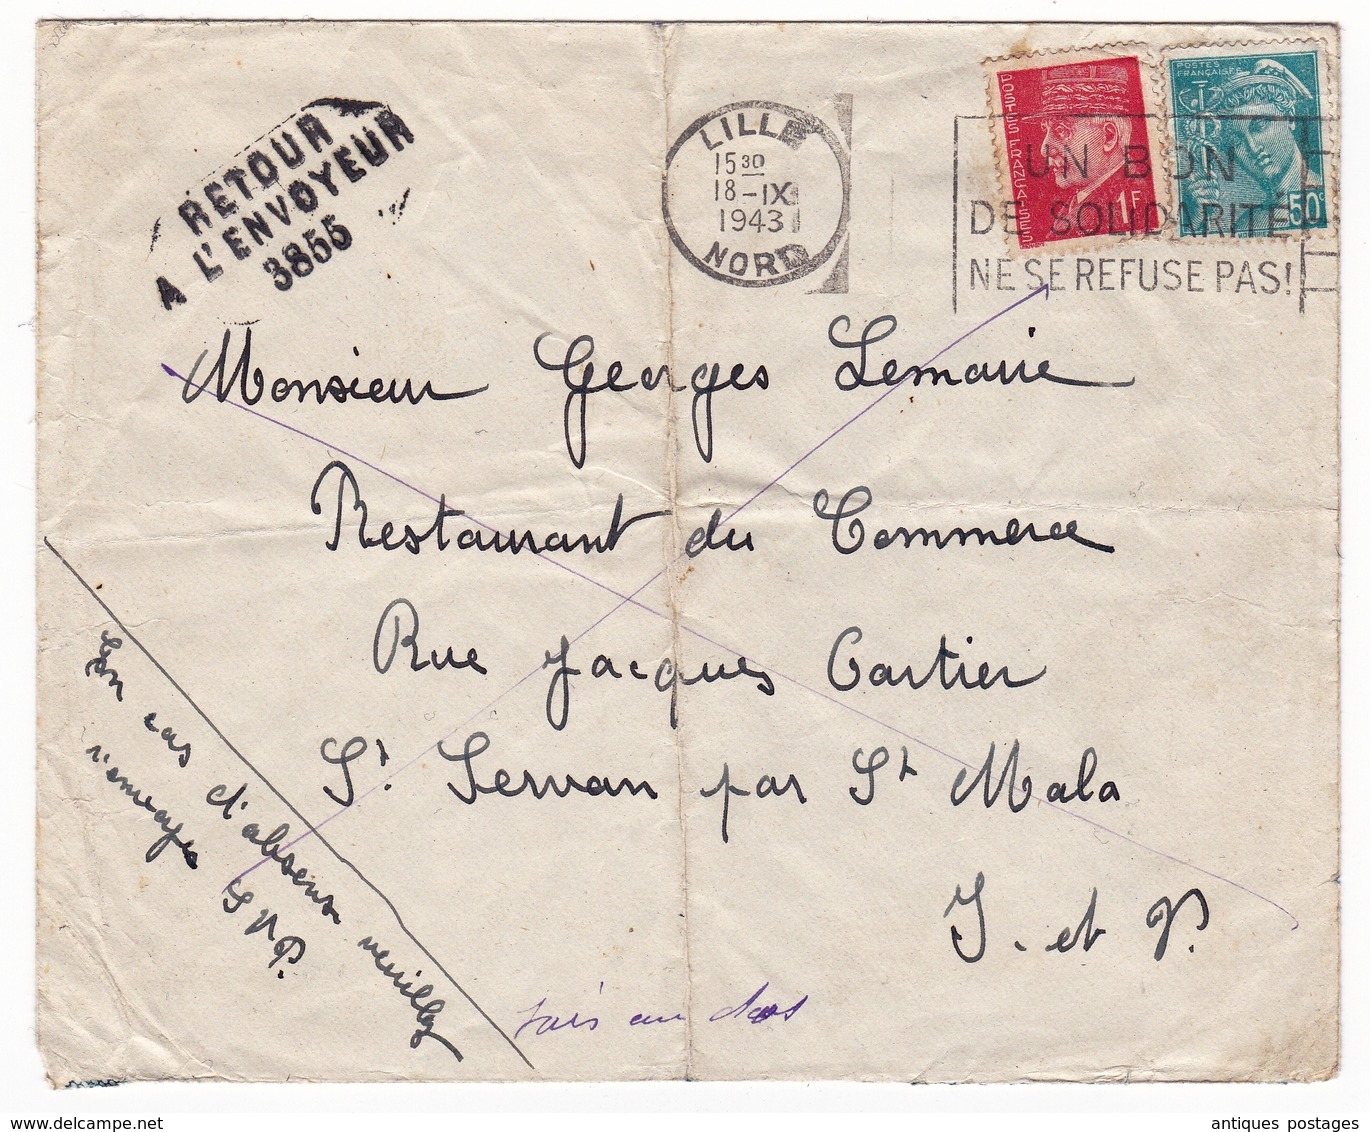 RETOUR
A L'ENVOYEUR
3855
LILLE
15 30
18-IX
1943
NORD
POSTES FRANÇAISES
1F
POSTES
FRANÇAISES
50c
UN BON
DE SOLIDARITÉ
NE SE REFUSE PAS!
Monsieur Georges Lemaire
Restaurant du Commerce
Rue Jacques Cartier
St Servan par St Malo
I. et V.
En cas d'absence veuillez
renvoyer S V P.
au dos
antiques postages